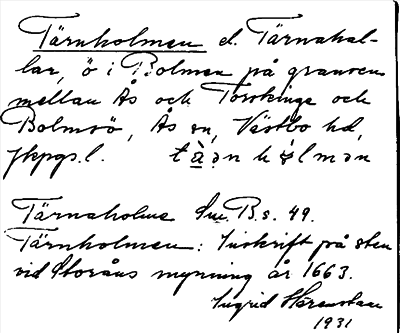 Tärnholmen el. Tärnahal-
lar, ö i Bolmen på gränsen
mellan Ås och Torskinge och
Bolmsö, Ås sn, Västbo hd,
Jkpgs. l.
Tärnaholme Sm. B. s. 49.
Tärnholmen: Inskrift på sten
vid Storåns mynning år 1663.
Ingrid
1931